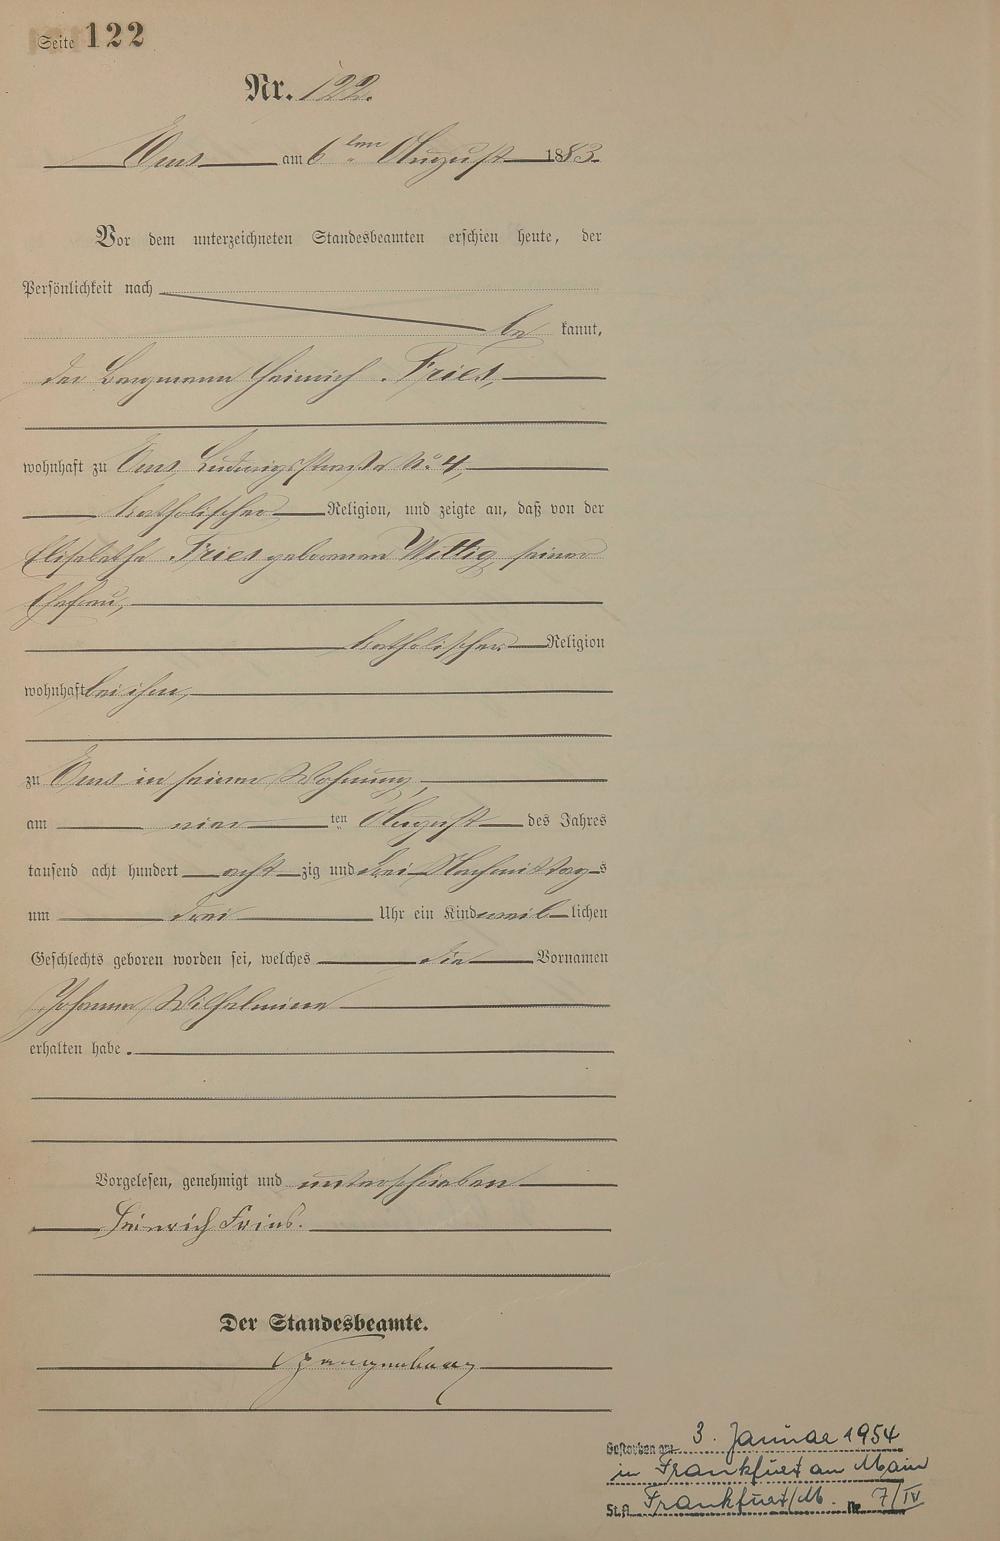 Seite 122
Nr. 122.
Ems am 6ten August 1883.
Vor dem unterzeichneten Standesbeamten erschien heute, der
Persönlichkeit nach
be kannt,
der Bergmann Heinrich Fries,
wohnhaft zu Ems Ludwigsstraße No. 4,
katholischer Religion, und zeigte an, daß von der
Elisabetha Fries geborenen Wittig seiner
Ehefrau,
katholischer Religion
wohnhaft bei ihm,
zu Ems in seiner Wohnung,
am vier ten August des Jahres
tausend acht hundert acht zig und drei Nachmittag s
um drei Uhr ein Kind weib lichen
Geschlechts geboren worden sei, welches die Vornamen
Johanna Wilhelmine
erhalten habe.
Vorgelesen, genehmigt und unterschrieben
Heinrich Fries.
Der Standesbeamte.
Gestorben am 3. Januar 1954
in Frankfurt am Main
St.A. Frankfurt/M. Nr. 7/IV